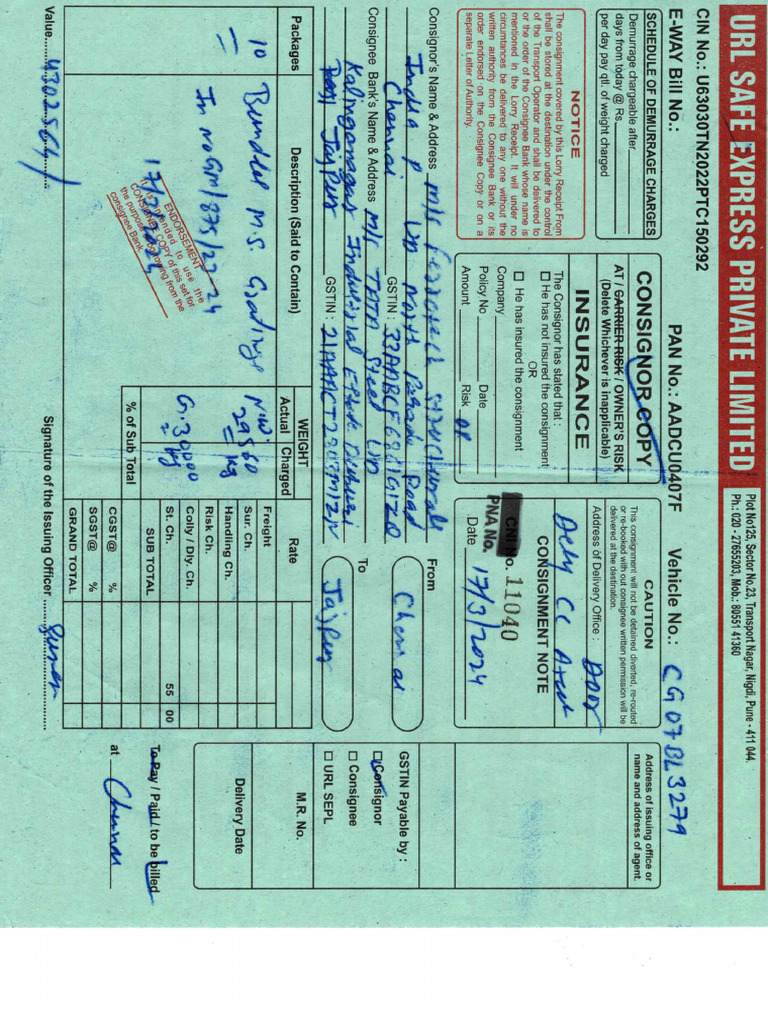 URL SAFE EXPRESS PRIVATE LIMITED
Plot No125, Sector No.23, Transport Nagar, Nigdi, Pune - 411 044.
Ph.: 020 - 27655203, Mob.: 80551 41360
CIN No.: U63030TN2022PTC150292
PAN No.: AADCU0407F
Vehicle No.: CG07BL3279
E-WAY Bill No.:
SCHEDULE OF DEMURRAGE CHARGES
Demurrage chargeable after
days from today @ Rs.
per day pay qtl. of weight charged
NOTICE
The consignment covered by this Lorry Receipt From
shall be stored at the destination under the control
of the Transport Operator and shall be delivered to
or the order of the Consignee Bank whose name is
mentioned in the Lorry Receipt. It will under no
circumtances be delivered to any one without the
written authority from the Consignee Bank or its
order endorsed on the Consignee Copy or on a
separate Letter of Authority.
CONSIGNOR COPY
AT / CARRIER RISK / OWNER'S RISK
(Delete Whichever is inapplicable)
INSURANCE
The Consignor has stated that :
He has not insured the consignment
OR
He has insured the consignment
Company
Policy No Date
Amount Risk OR
CAUTION
This consignment will not be detained diverted, re-routed
or re-booked with out consignee written permission will be
delivered at the destination.
Address of Delivery Office : Door
CONSIGNMENT NOTE
PNA No. 11040
Date 17/3/2024
Address of issuing office or
name and address of agent.
Consignor's Name & Address M/s
India P. North Road
Chennai GSTIN :
Consignee Bank's Name & Address M/s TATA Steel
Kalinganagar Industrial
Jajpur GSTIN :
From
Chennai
To
Jajpur
GSTIN Payable by :
Consignor
Consignee
URL SEPL
M.R. No.
Delivery Date
Packages
Description (Said to Contain)
WEIGHT
Actual
Charged
Rate
10 Bundles M.S. Gratings
In no GM/875/23-24
17/3/2024
N.W.
29560 kg
G. 30000 kg
% of Sub Total
Freight
Sur. Ch.
Handling Ch.
Risk Ch.
Colly / Dly. Ch.
St. Ch. 55 00
SUB TOTAL
CGST@ %
SGST@ %
GRAND TOTAL
ENDORSEMENT
intended to use the
CONSIGNEE COPY of this set for
the purpose of borrowing from the
consignee Bank
To Pay / Paid / to be billed
at Chennai
Value 4302564/
Signature of the Issuing Officer